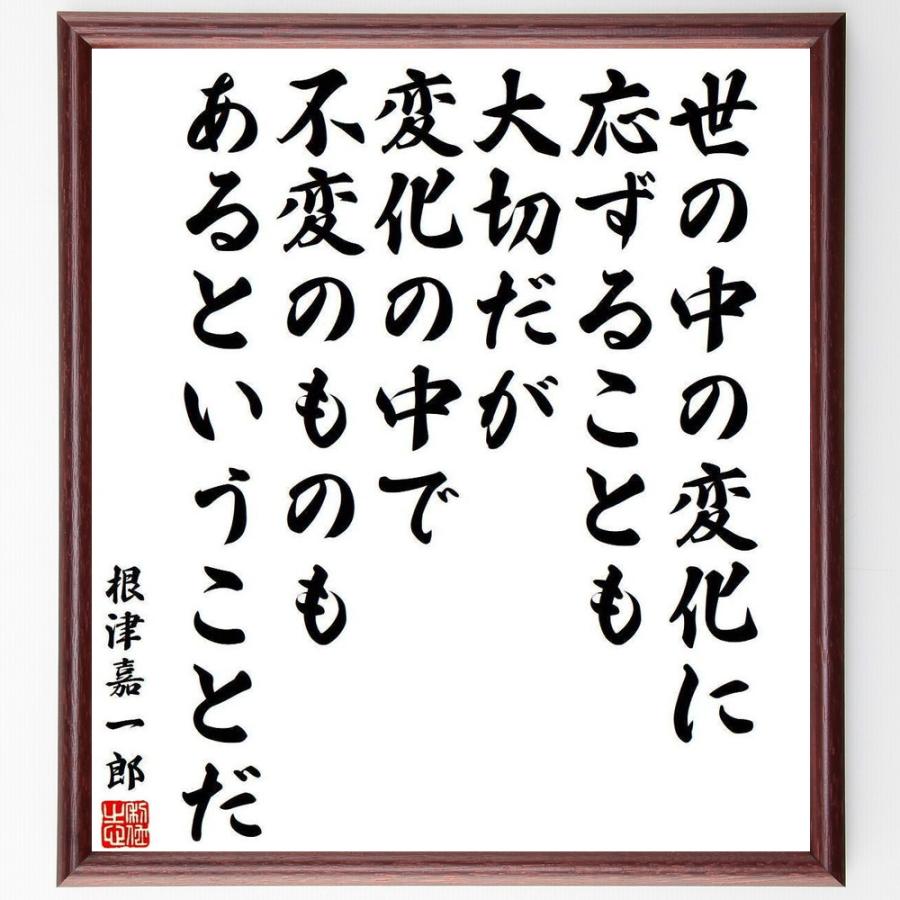 世の中の変化に
応ずることも
大切だが
変化の中で
不変のものも
あるということだ
根津嘉一郎